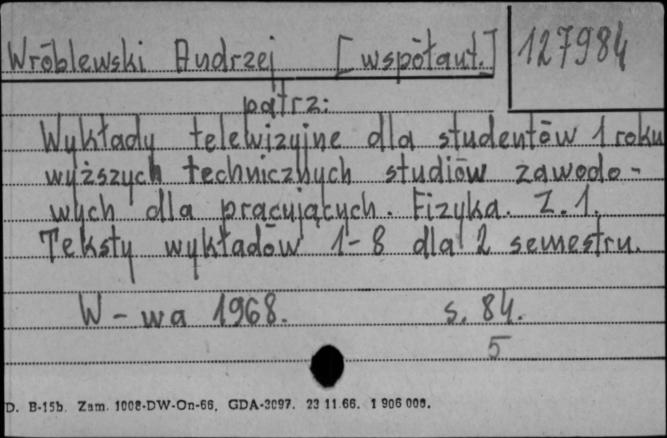 Wróblewski Andrzej [współaut.] 127984
patrz:
Wykłady telewizyjne dla studentów 1 roku
wyższych technicznych studiów zawodo-
wych dla pracujących. Fizyka. Z. 1.
Teksty wykładów 1-8 dla 2 semestru.
W-wa 1968. s. 84.
5
D. B-15b. Zam. 1008-DW-On-66. GDA-3097. 23 11.66. 1 906 000.